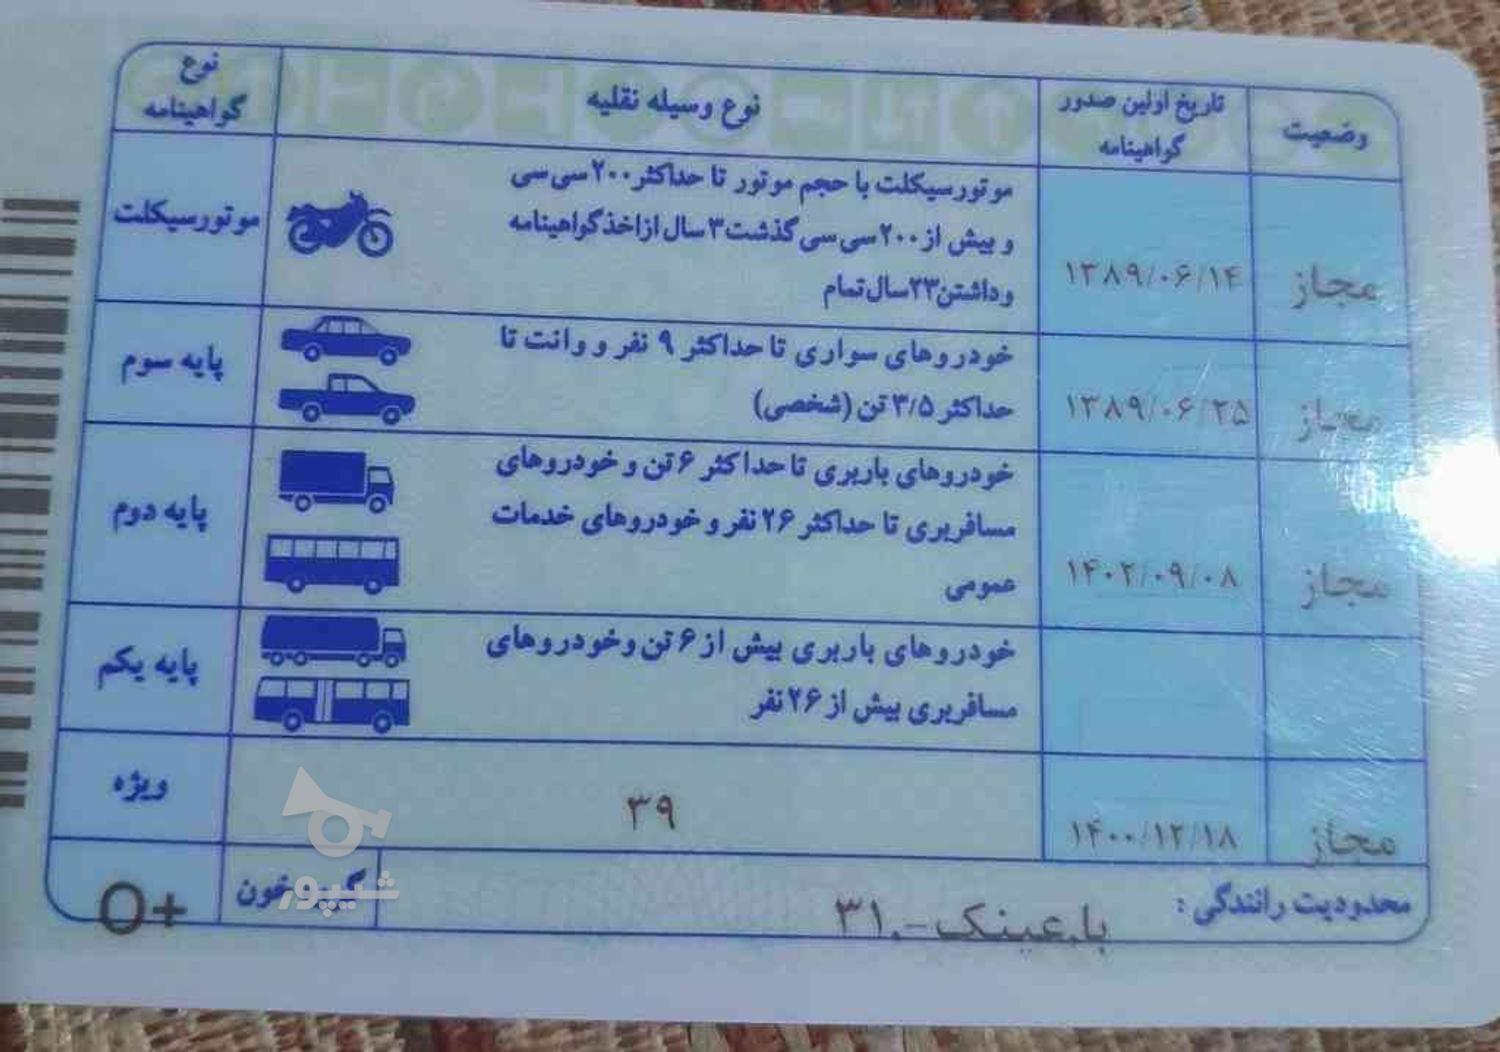 وضعیت
تاریخ اولین صدور
گواهینامه
نوع وسیله نقلیه
نوع
گواهینامه
موتورسیکلت با حجم موتور تا حداکثر ۲۰۰ سی سی
و بیش از ۲۰۰ سی سی گذشت ۳ سال از اخذ گواهینامه
و داشتن ۲۳ سال تمام
موتورسیکلت
۱۳۸۹/۰۶/۱۴
مجاز
خودروهای سواری تا حداکثر ۹ نفر و وانت تا
حداکثر ۳/۵ تن (شخصی)
پایه سوم
۱۳۸۹/۰۶/۲۵
مجاز
خودروهای باربری تا حداکثر ۶ تن و خودروهای
مسافربری تا حداکثر ۲۶ نفر و خودروهای خدمات
عمومی
پایه دوم
۱۴۰۲/۰۹/۰۸
مجاز
خودروهای باربری بیش از ۶ تن و خودروهای
مسافربری بیش از ۲۶ نفر
پایه یکم
ویژه
۳۹
۱۴۰۰/۱۲/۱۸
مجاز
محدودیت رانندگی :
با.عینک-.۳۱
گروه خون
O+
شیپور